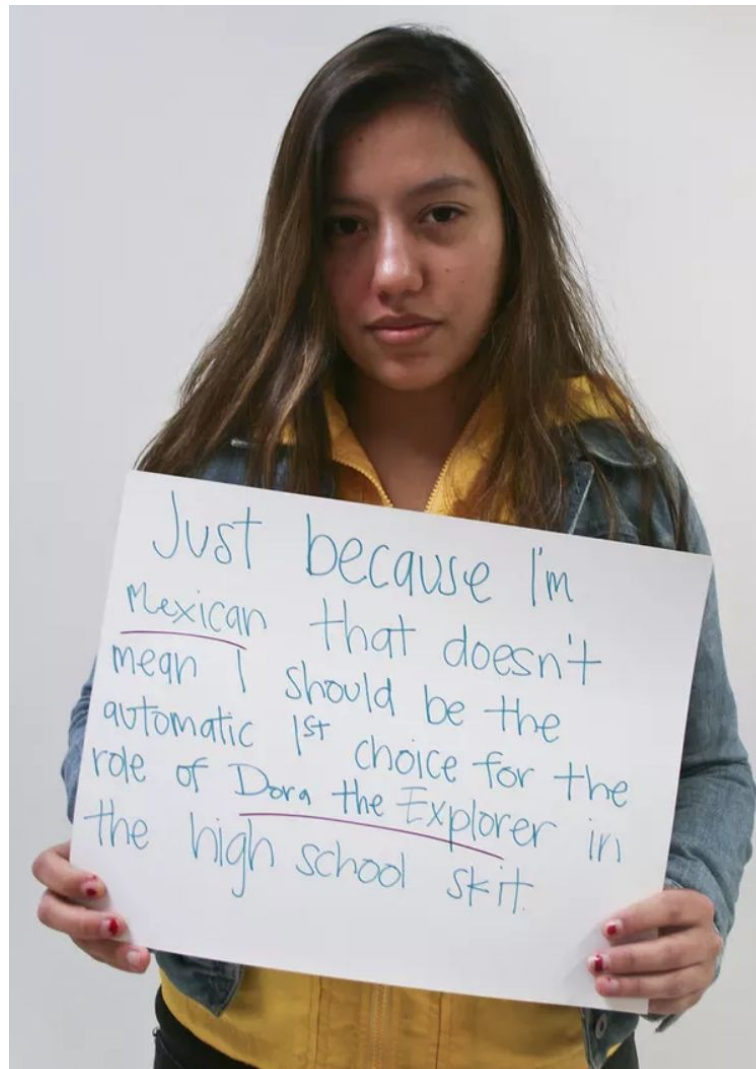 Just because I'm
Mexican that doesn't
mean I should be the
automatic 1st choice for the
role of Dora the Explorer in
the high school skit.